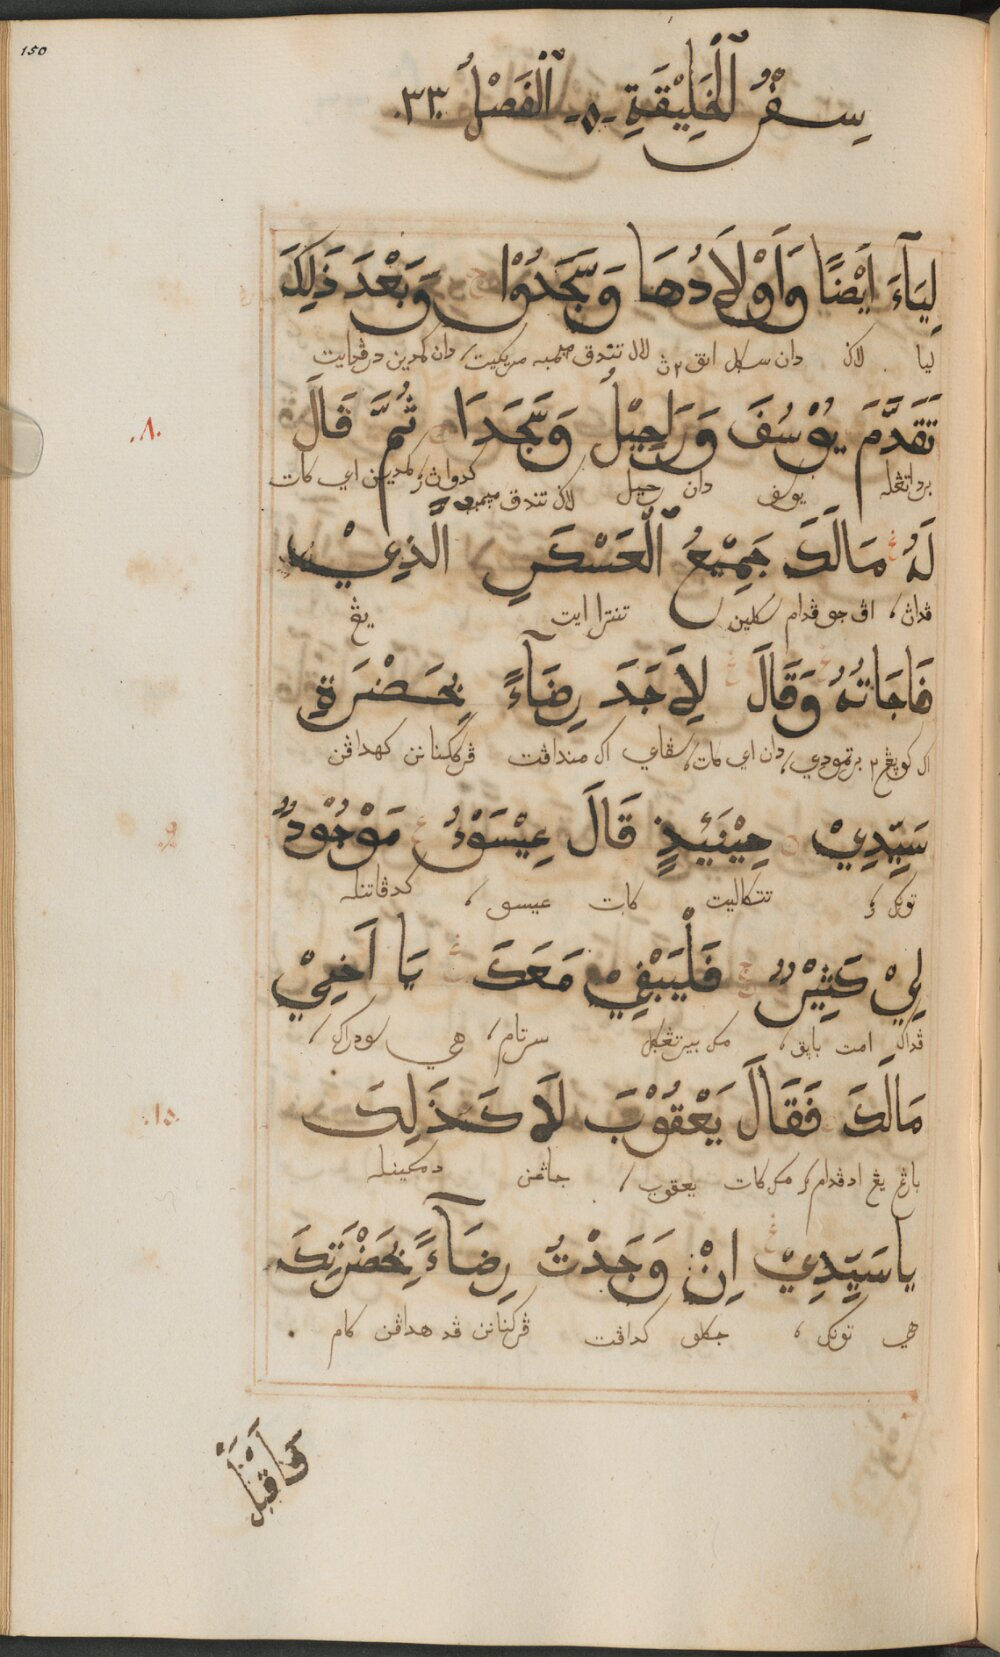 150
سِفْرُ ٱلْخَلِيْقَةِ -٥- ٱلْفَصْلُ .٣٣.
لِيَآءَ اَيْضًا وَاَوْلَادُهَا وَسَجَدُوْا وَبَعْدَ ذَلِكَ
ليا لاݢ دان سكل انق ٢ ث لالو تندق مڽمبه مريكيت، دان كمدين درڤدايت
.٨.
تَقَدَّمَ يُوْسُفَ وَرَاحِيْلُ وَسَجَدَا ثُمَّ قَالَ
برداتڠله يوسف دان رحيل لاݢ تندق كدواث كمدين اي كات
لَهُ مَالَكَ جَمِيْعُ ٱلْعَسْكَرِ الَّذِيْ
ڤداث، اڤ جو ڤدام سكلين تنترا ايت يڠ
فَاجَاتُهُ وَقَالَ لِاَجَدَ رِضَآءً بِحَضْرَةِ
برتمودي، دان اي كات، سڤاي اكو منداڤت كهداڤن
٩
سَيِّدِيْ حِيْنَئِذٍ قَالَ عِيْسَوْ مَوْجُوْدٌ
توانكو تتكاليت كات عيسو، كدڤاتنله
لِيْ كَثِيْرٌ فَلْيَبْقِيْ مَعَكَ يَا اَخِيْ
ڤداكو امت باڽق، مك بيرتڠݢل سرتام، هي سودراكو،
.١٠.
مَالَكَ فَقَالَ يَعْقُوْبَ لَا كَذَلِكَ
بارڠ يڠ ادڤدام مك كات يعقوب، جاڠن دمكينله
يا سَيِّدِيْ اِنْ وَجَدْتُ رِضَآءً بِحَضْرَتِكَ
هي توانكو، جكلو كداڤت ڤد هداڤن كام
وَاقْبَلْ